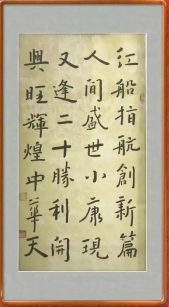 江船指航創新篇
人间盛世小康現
又逢二十勝利開
興旺輝煌中華天